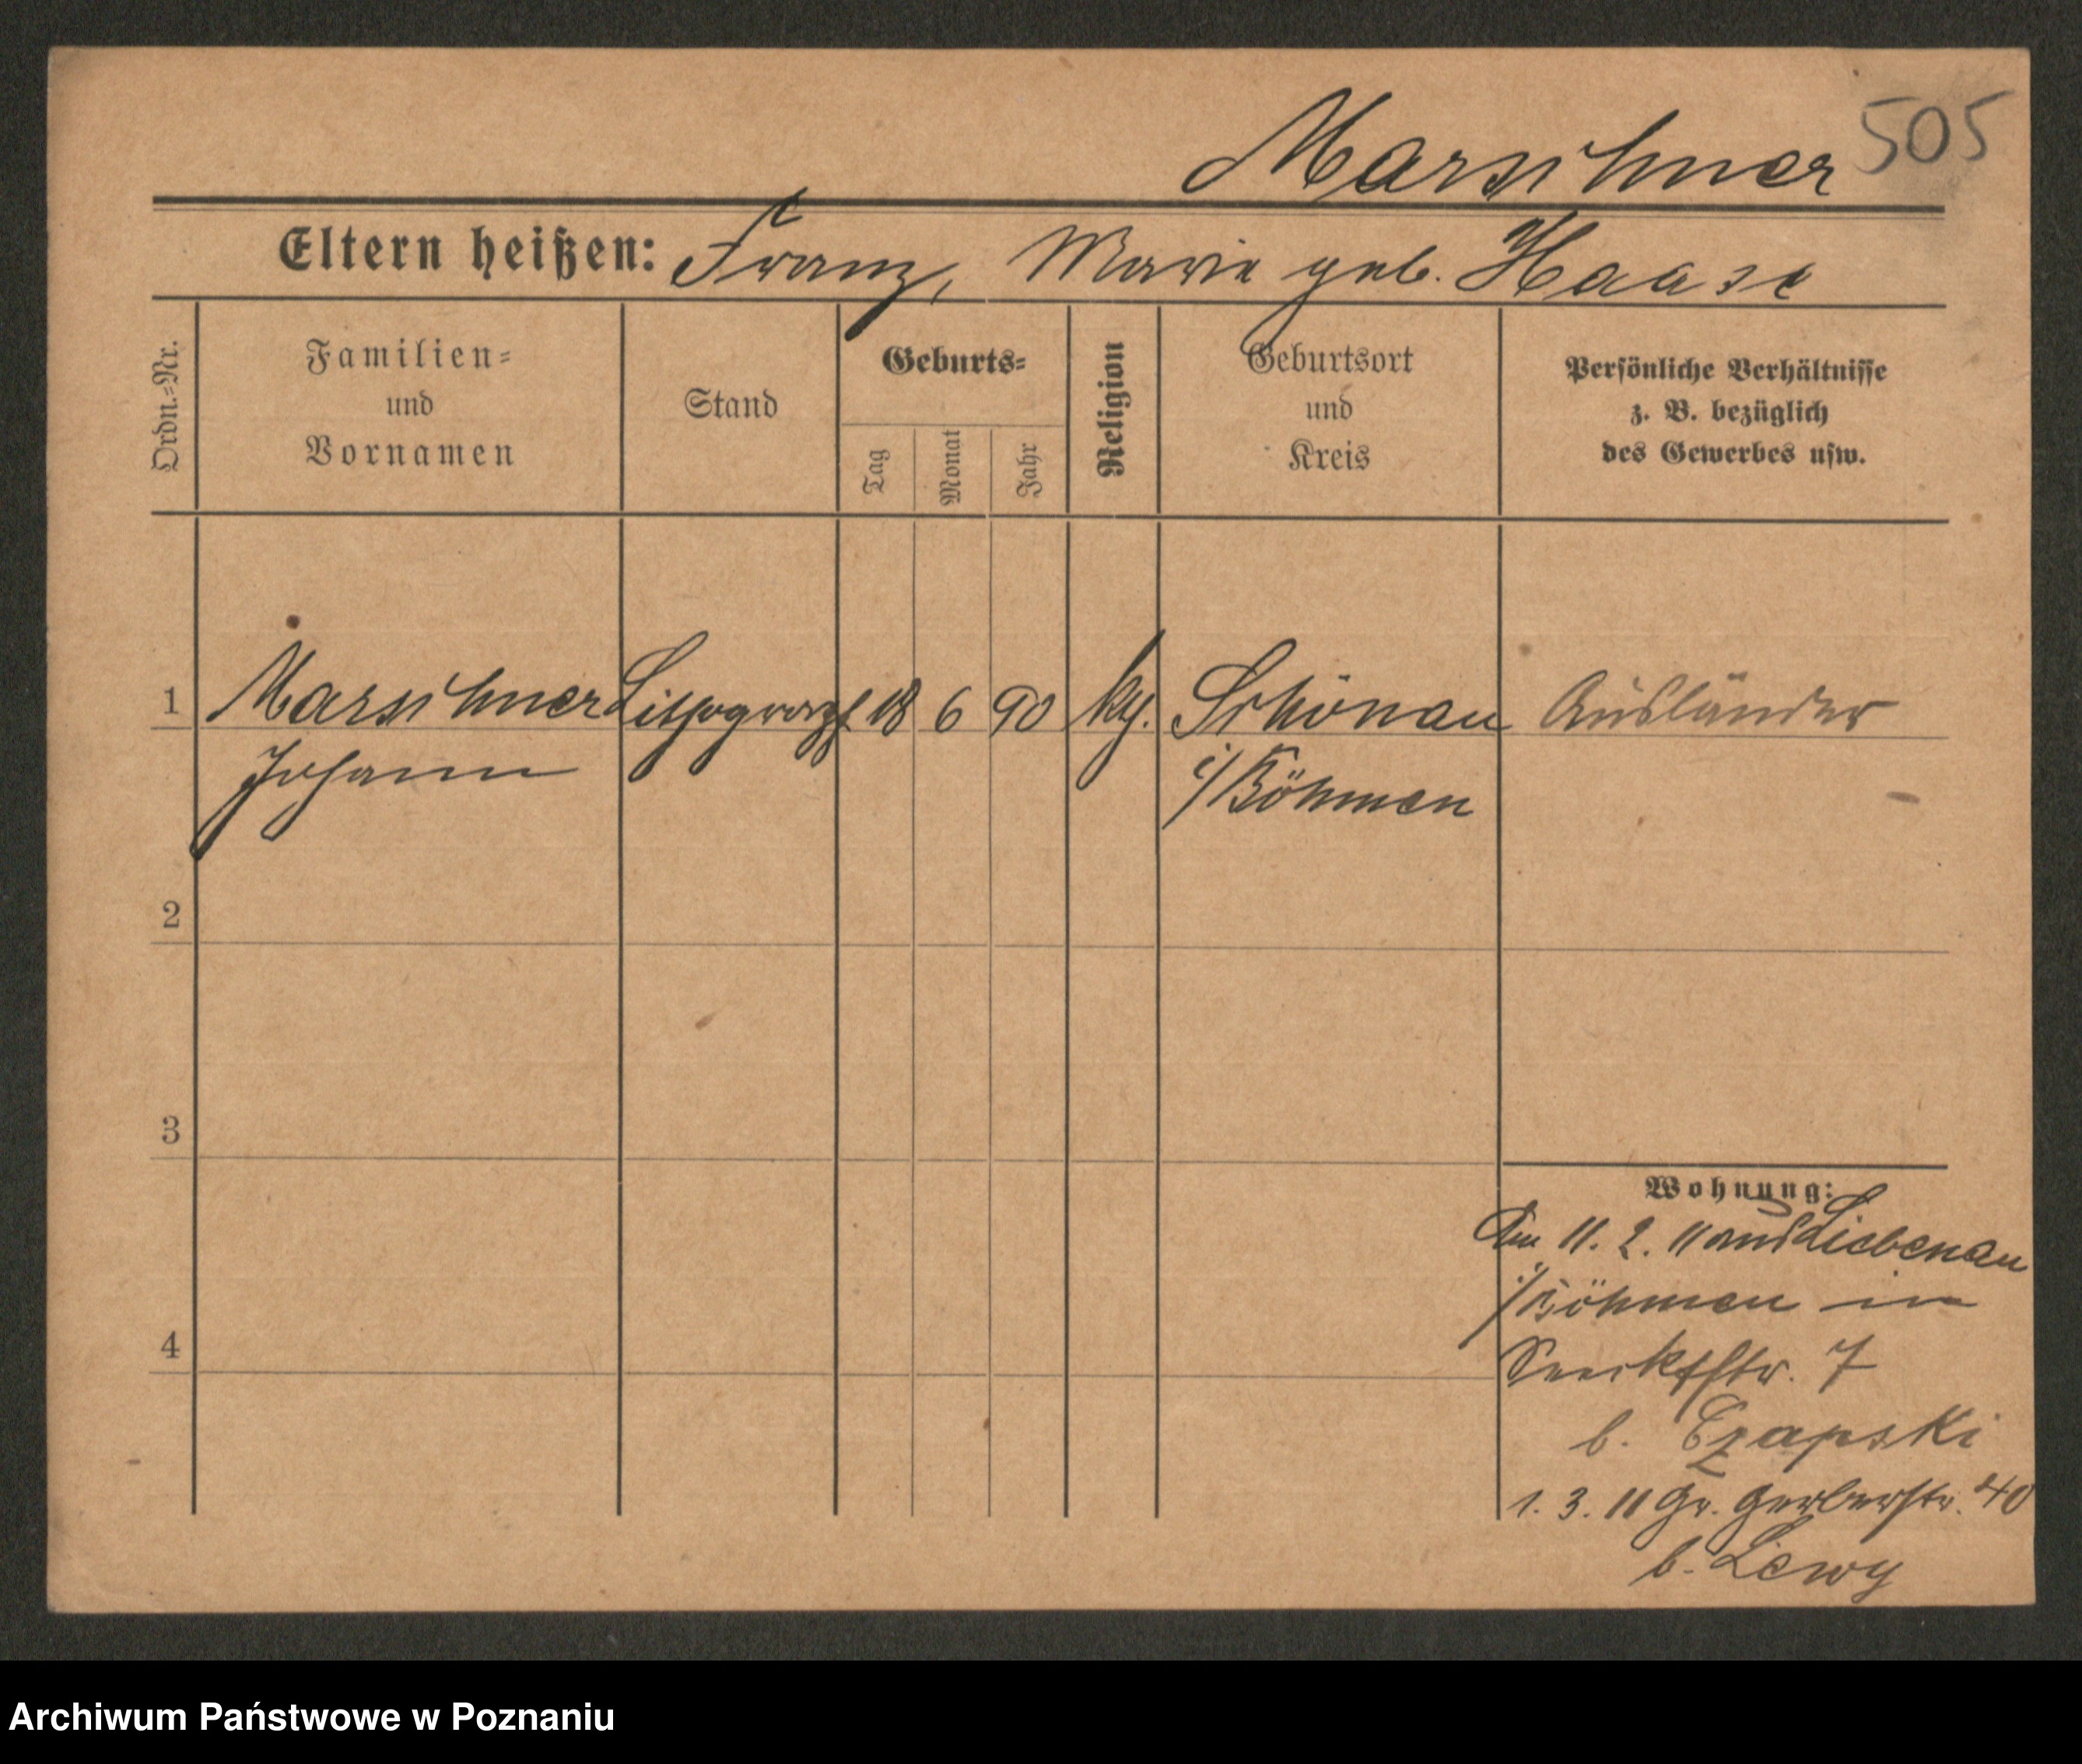 505
Marschner
Eltern heißen: Franz, Marie geb. Haase
Ordn.-Nr.
Familien-
und
Vornamen
Stand
Geburts-
Tag
Monat
Jahr
Religion
Geburtsort
und
Kreis
Persönliche Verhältnisse
z. B. bezüglich
des Gewerbes usw.
1 Marschner Lithograph 18 6 90 Schönau Ausländer
Johann i/Böhmen
2
3
Wohnung:
Am 11. 2. 11 aus Liebenau
i/Böhmen in
4
7
b. Czapski
1. 3. 11 Gr. Gerberstr. 40
b. Lewy
Archiwum Państwowe w Poznaniu